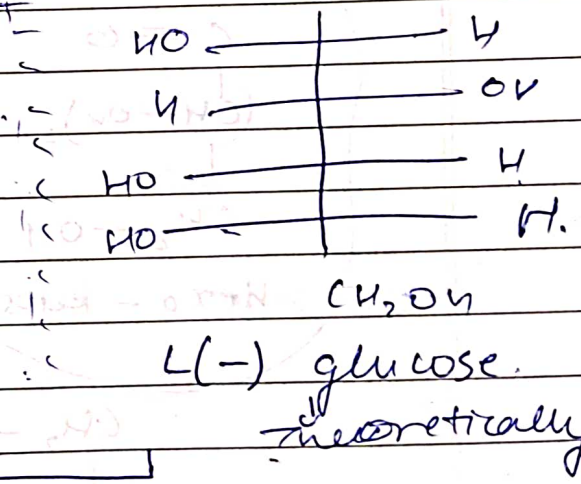 HO H
H OH
HO H
HO H.
CH₂OH
L(-) glucose.
Theoretically